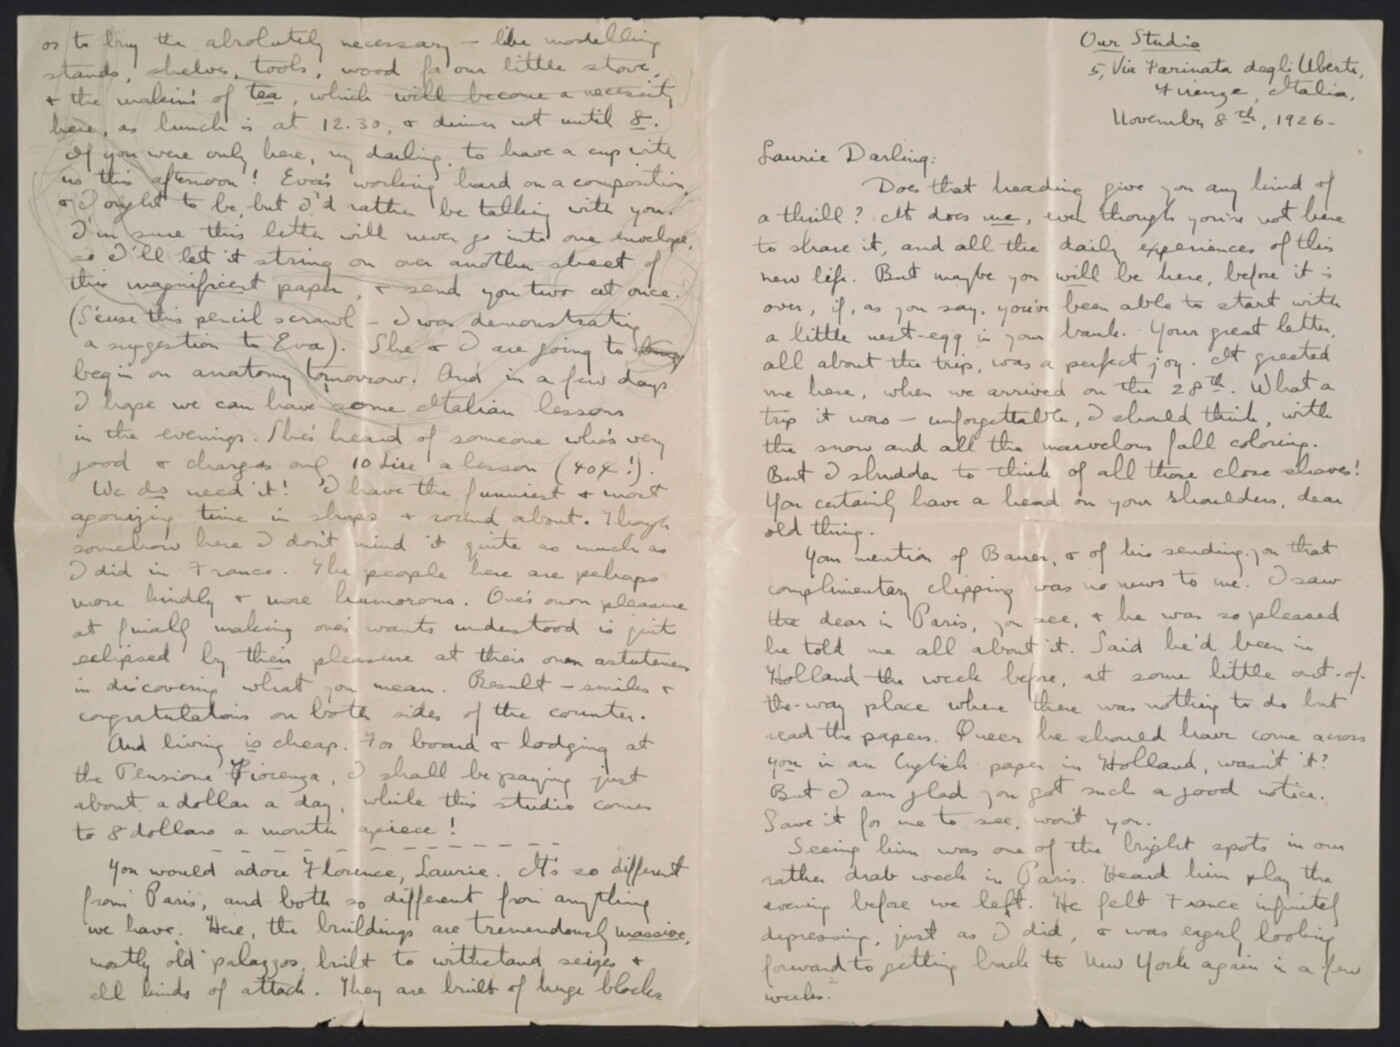 Our Studio
5, Via Farinata degli Uberti,
Firenze, Italia.
November 8th, 1926-
Laurie Darling:
Does that heading give you any kind of
a thrill? It does me, even though you're not here
to share it, and all the daily experiences of this
new life. But maybe you will be here, before it is
over, if, as you say, you've been able to start with
a little nest-egg in your bank. Your great letter,
all about the trip, was a perfect joy. It greeted
me here, when we arrived on the 28th. What a
trip it was - unforgettable, I should think, with
the snow and all the marvelous fall coloring.
But I shudder to think of all those close shaves!
You certainly have a head on your shoulders, dear
old thing.
Your mention of Bauer, & of his sending you that
complimentary clipping was no news to me. I saw
the dear in Paris, you see, & he was so pleased
he told me all about it. Said he'd been in
Holland the week before, at some little out-of-
the-way place where there was nothing to do but
read the papers. Queer he should have come across
you in an English paper in Holland, wasn't it?
But I am glad you got such a good notice.
Save it for me to see, won't you.
Seeing him was one of the bright spots in our
rather drab week in Paris. Heard him play the
evening before we left. He felt France infinitely
depressing, just as I did, & was eagerly looking
forward to getting back to New York again in a few
weeks.
or to buy the absolutely necessary - like modelling
stands, shelves, tools, wood for our little stove,
& the makin's of tea, which will become a necessity
here, as lunch is at 12.30, & dinner not until 8.
If you were only here, my darling, to have a cup with
us this afternoon! Eva's working hard on a composition,
& I ought to be, but I'd rather be talking with you.
I'm sure this letter will never go into one envelope,
so I'll let it string on over another sheet of
this magnificent paper, & send you two at once.
(S'cuse this pencil scrawl - I was demonstrating
a suggestion to Eva). She & I are going to
begin on anatomy tomorrow. And in a few days
I hope we can have some Italian lessons
in the evenings. She's heard of someone who's very
good & charges only 10 Lire a lesson (40¢!).
We do need it! I have the funniest & most
agonizing time in shops & round about. Though
somehow here I don't mind it quite as much as
I did in France. The people here are perhaps
more kindly & more humorous. One's own pleasure
at finally making one's wants understood is quite
eclipsed by their pleasure at their own astuteness
in discovering what you mean. Result - smiles &
congratulations on both sides of the counter.
And living is cheap. For board & lodging at
the Pensione Fiorenza, I shall be paying just
about a dollar a day, while this studio comes
to 8 dollars a month apiece!
You would adore Florence, Laurie. It's so different
from Paris, and both so different from anything
we have. Here, the buildings are tremendously massive,
mostly old palazzos, built to withstand seiges &
all kinds of attack. They are built of huge blocks